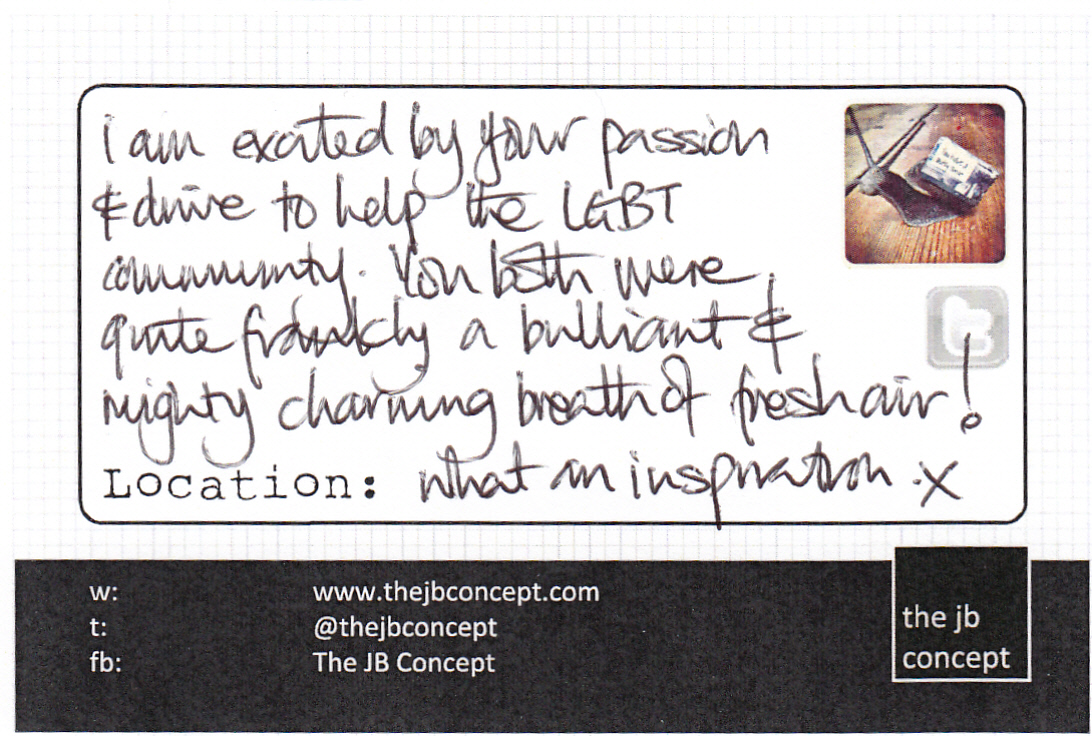 i am excited by your passion
& drive to help the LGBT
community. You both were
quite frankly a brilliant &
mighty charming breath of fresh air!
Location: what an inspiration .x
w: www.thejbconcept.com
t: @thejbconcept
fb: The JB Concept
the jb
concept